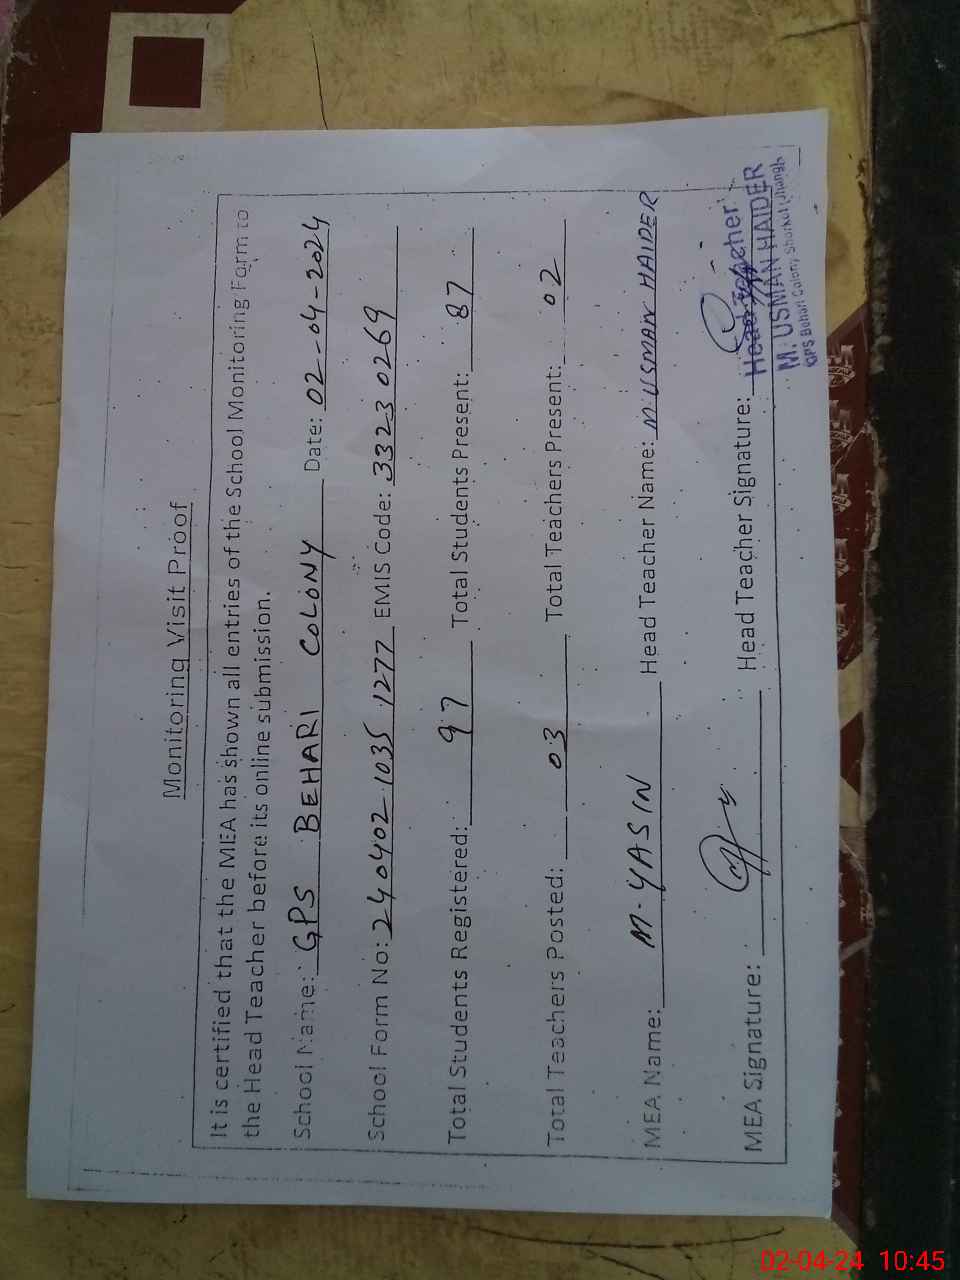 Monitoring Visit Proof
It is certified that the MEA has shown all entries of the School Monitoring Form to
the Head Teacher before its online submission.
School Name: GPS BEHARI COLONY Date: 02-04-2024
School Form No: 240402 1035 1277 EMIS Code: 3323 0269
Total Students Registered: 97 Total Students Present: 87
Total Teachers Posted: 03 Total Teachers Present: 02
MEA Name: M. YASIN Head Teacher Name: M. USMAN HAIDER
MEA Signature: Head Teacher Signature:
Head Teacher
M. USMAN HAIDER
GPS Behari Colony Shorkot (Jhang)
02-04-24 10:45